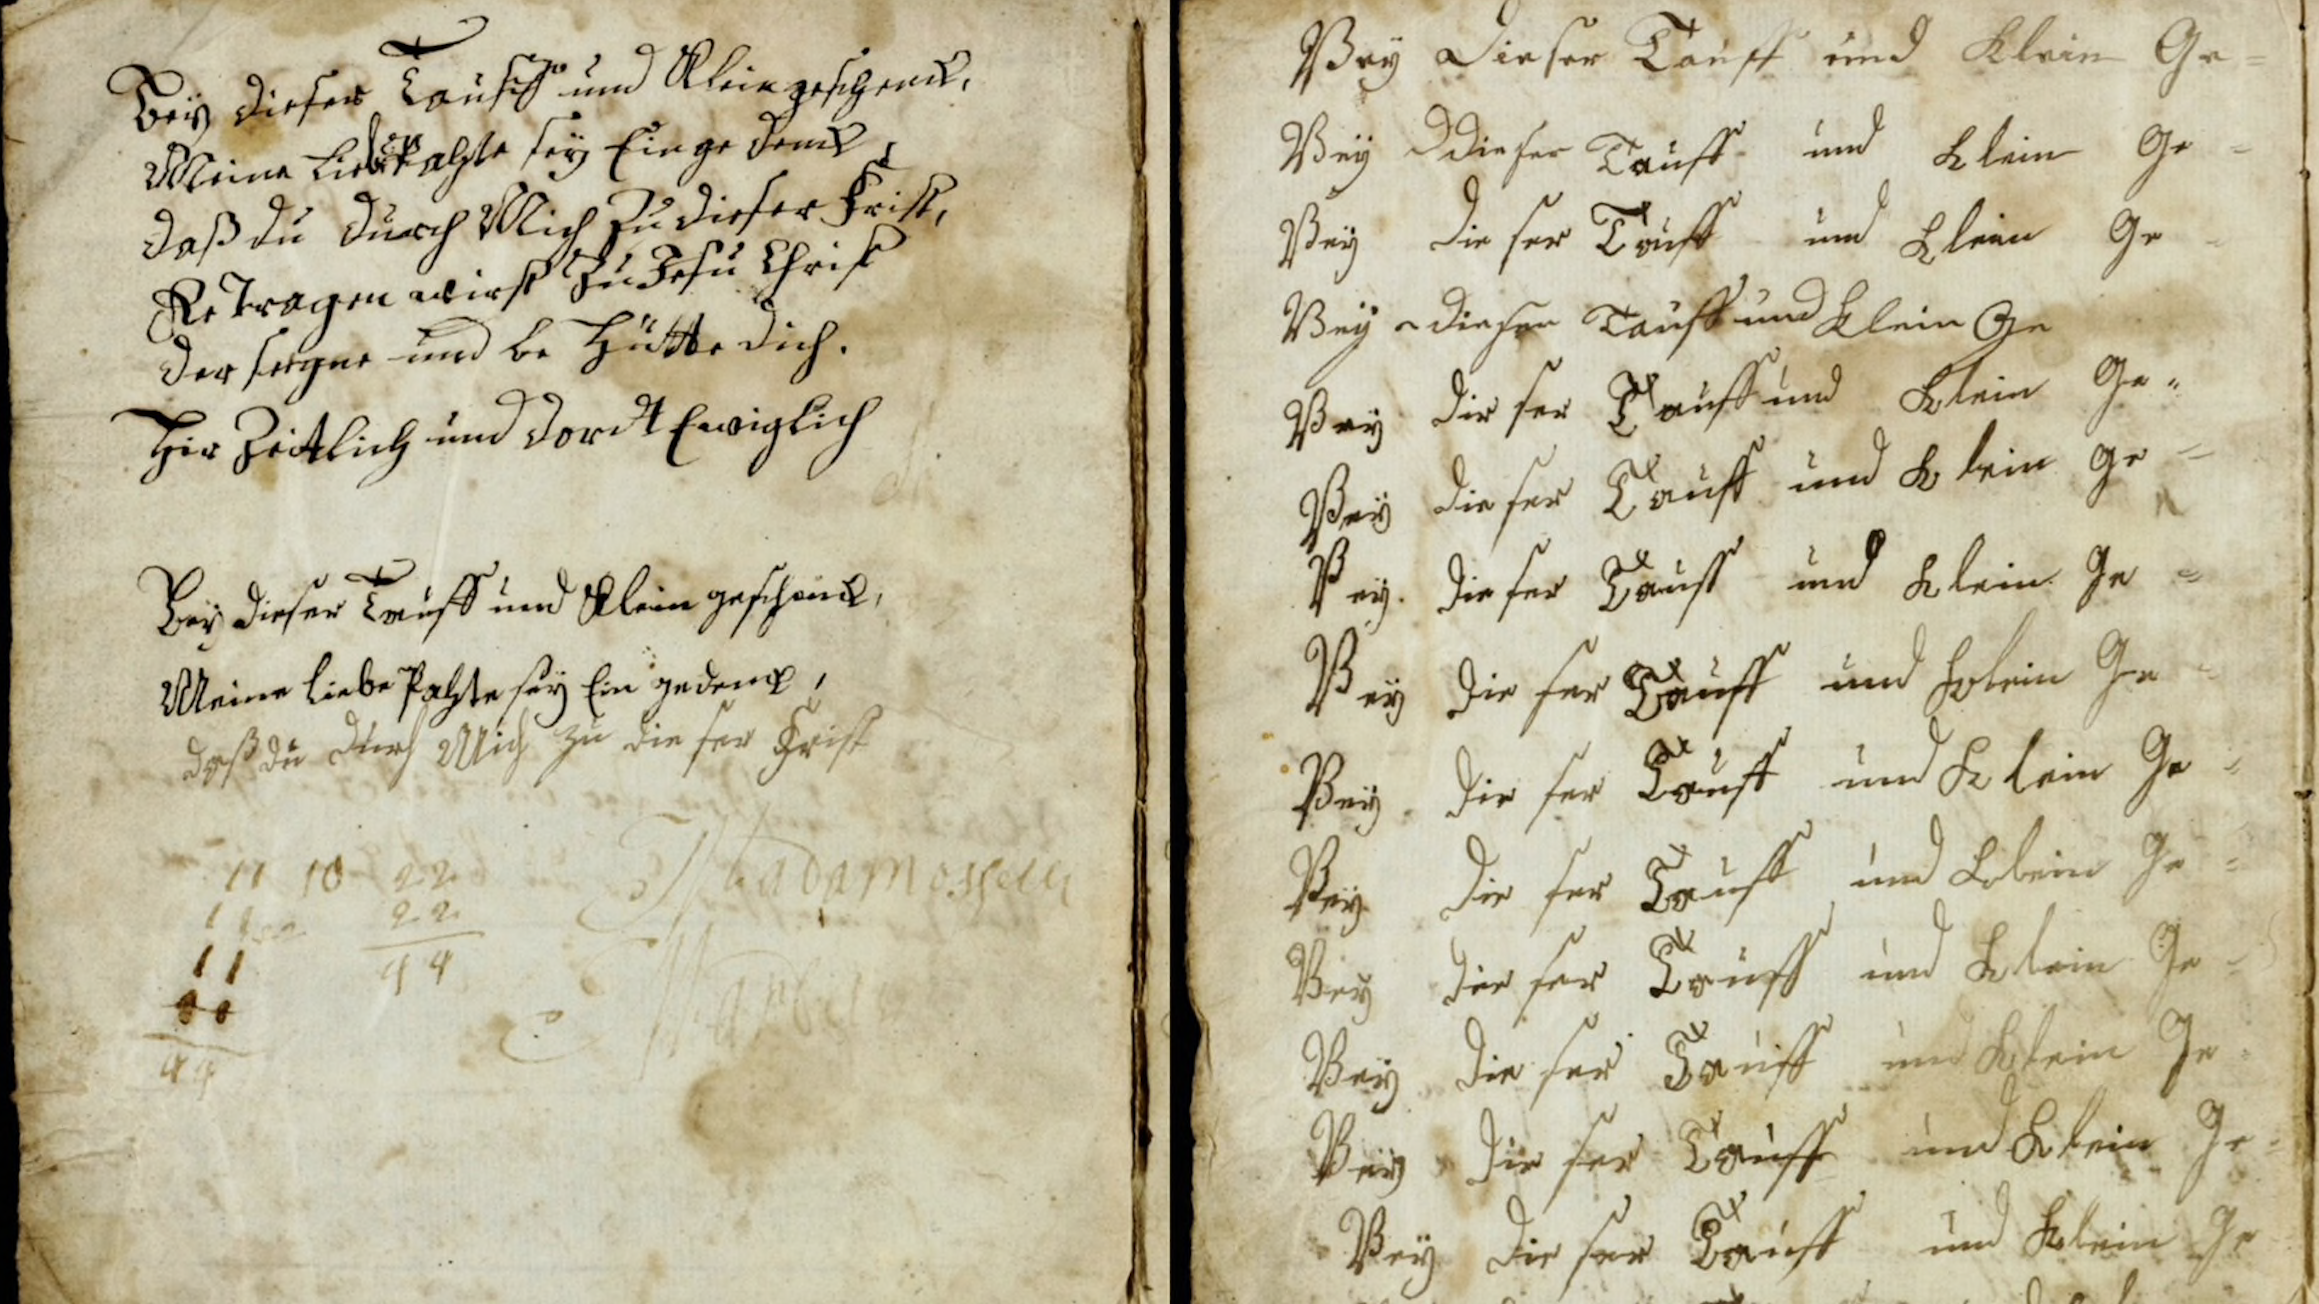 Beÿ dieser Tauff und Klein geschenck,
Meine Liebe Pahte seÿ Einge denck,
daß du durch Mich Zu dieser Frist,
Ge Tragen wirst Zu Jesu Christ
der seegne und be Hütte dich.
Hir Zeittlich und dordt Ewiglich
Beÿ dieser Tauff und Klein geschenck,
Meine liebe Pahte seÿ Ein gedenck,
daß du durch Mich zu die ser Frist
11 10 22
22
11
44
44
Madamoselle
Beÿ Dieser Tauff und Klein Ge=
Beÿ Ddieser Tauff und Klein Ge=
Beÿ die ser Tauff und Klein Ge-
Beÿ dieser Tauff und Klein Ge
Beÿ die ser Tauff und Klein Ge=
Beÿ die ser Tauff und Klein Ge=
Beÿ. die ser Tauff und Klein Ge=
Beÿ die ser Tauff und Klein Ge-
Beÿ die ser Tauff und Klein Ge=
Beÿ die ser Tauff und Klein Ge=
Beÿ die ser Tauff und Klein Ge-
Beÿ die ser Tauff und Klein Ge=
Beÿ die ser Tauff und Klein Ge=
Beÿ die ser Tauff und Klein Ge